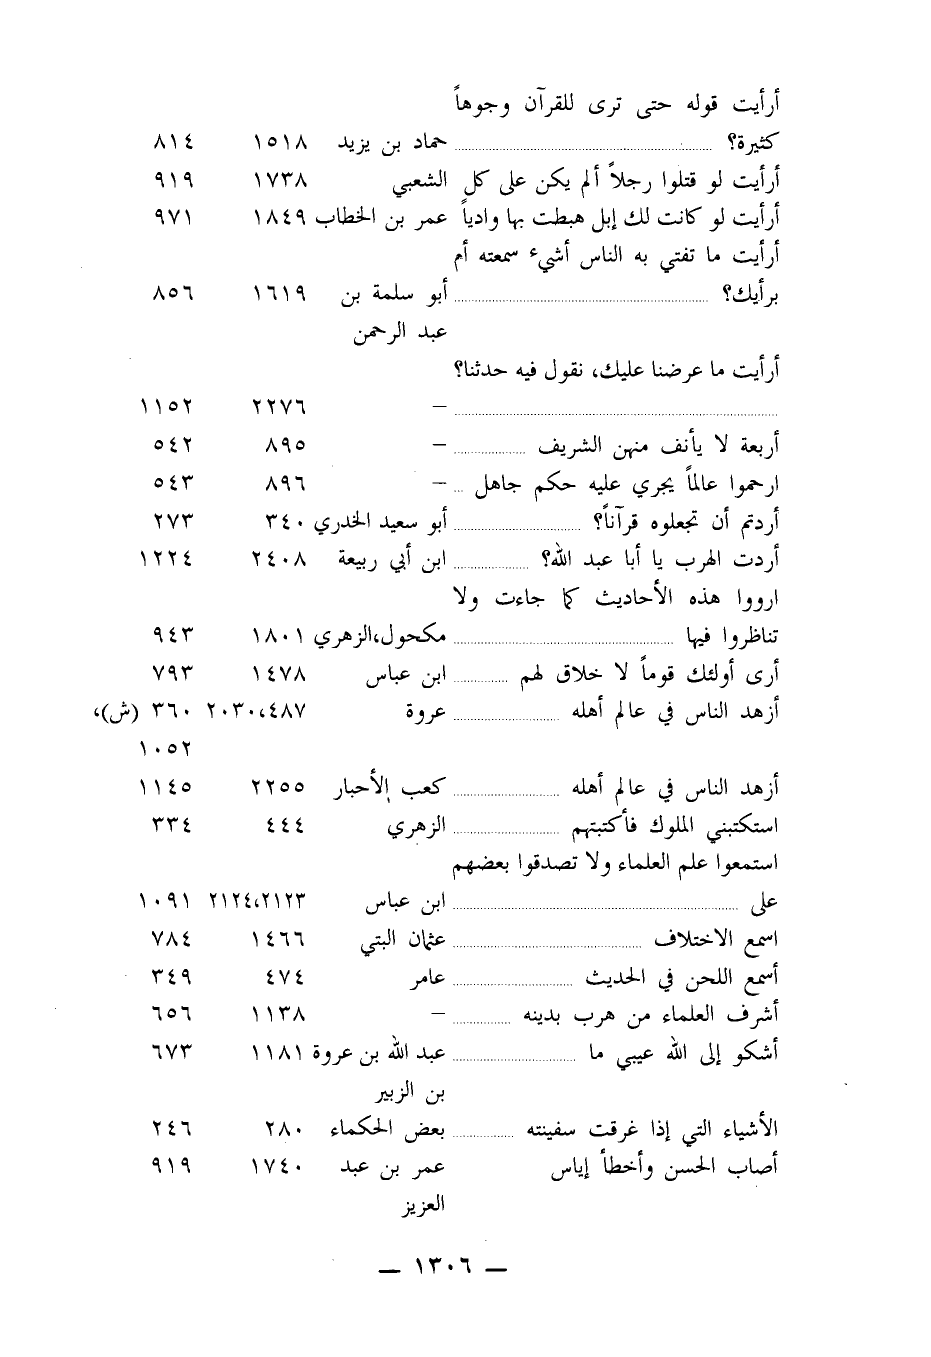 أرأيت قوله حتى ترى للقرآن وجوهاً
كثيرة؟ حماد بن يزيد ١٥١٨ ٨١٤
أرأيت لو قتلوا رجلاً ألم يكن على كل الشعبي ١٧٣٨ ٩١٩
أرأيت لو كانت لك إبل هبطت بها وادياً عمر بن الخطاب ١٨٤٩ ٩٧١
أرأيت ما تفتي به الناس أشيء سمعته أم
برأيك؟ أبو سلمة بن ١٦١٩ ٨٥٦
عبد الرحمن
أرأيت ما عرضنا عليك، نقول فيه حدثنا؟
– ٢٢٧٦ ١١٥٢
أربعة لا يأنف منهن الشريف – ٨٩٥ ٥٤٢
ارحموا عالماً يجري عليه حكم جاهل – ٨٩٦ ٥٤٣
أردتم أن تجعلوه قرآناً؟ أبو سعيد الخدري ٣٤٠ ٢٧٣
أردت الهرب يا أبا عبد الله؟ ابن أبي ربيعة ٢٤٠٨ ١٢٢٤
ارووا هذه الأحاديث كما جاءت ولا
تناظروا فيها مكحول،الزهري ١٨٠١ ٩٤٣
أرى أولئك قوماً لا خلاق لهم ابن عباس ١٤٧٨ ٧٩٣
أزهد الناس في عالم أهله عروة ٢٠٣٠،٤٨٧ ٣٦٠ (ش)،
١٠٥٢
أزهد الناس في عالم أهله كعب الأحبار ٢٢٥٥ ١١٤٥
استكتبني الملوك فأكتبتهم الزهري ٤٤٤ ٣٣٤
استمعوا علم العلماء ولا تصدقوا بعضهم
على ابن عباس ٢١٢٤،٢١٢٣ ١٠٩١
اسمع الاختلاف عثمان البتي ١٤٦٦ ٧٨٤
أسمع اللحن في الحديث عامر ٤٧٤ ٣٤٩
أشرف العلماء من هرب بدينه – ١١٣٨ ٦٥٦
أشكو إلى الله عيبي ما عبد الله بن عروة ١١٨١ ٦٧٣
بن الزبير
الأشياء التي إذا غرقت سفينته بعض الحكماء ٢٨٠ ٢٤٦
أصاب الحسن وأخطأ إياس عمر بن عبد ١٧٤٠ ٩١٩
العزيز
– ١٣٠٦ –